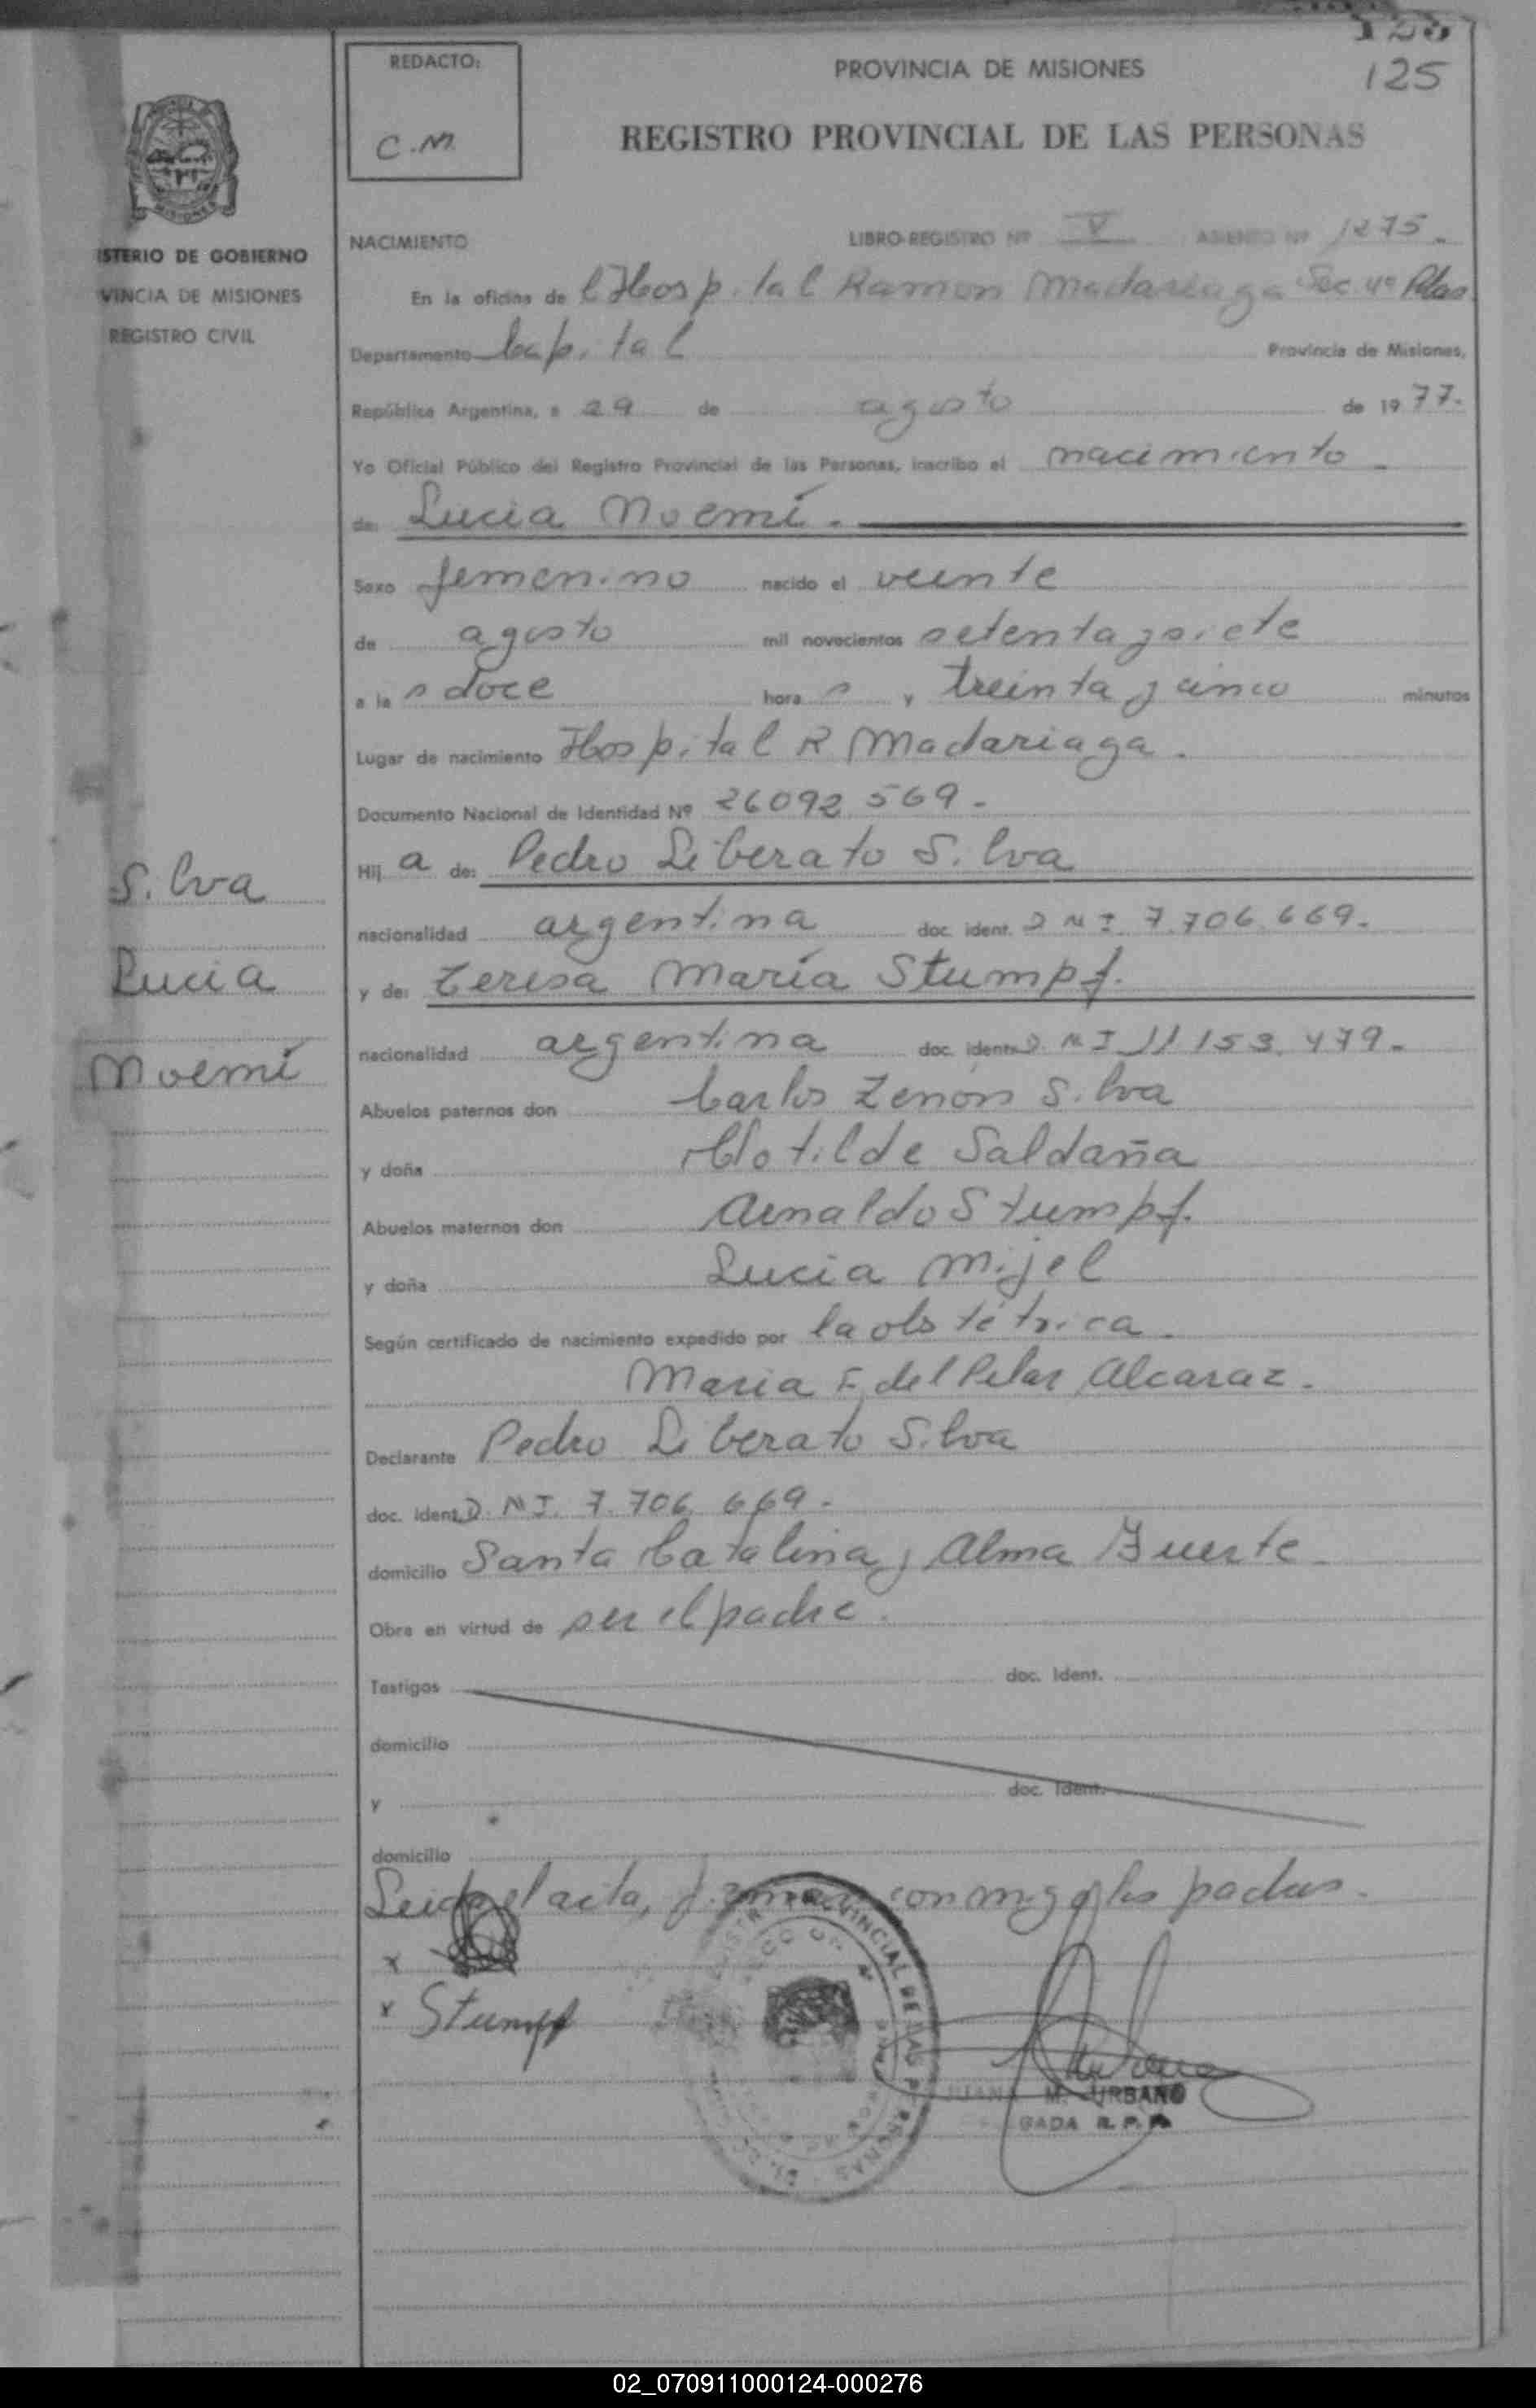 125
REDACTO:
C.M.
PROVINCIA DE MISIONES
REGISTRO PROVINCIAL DE LAS PERSONAS
MISIONES
ISTERIO DE GOBIERNO
VINCIA DE MISIONES
REGISTRO CIVIL
NACIMIENTO LIBRO-REGISTRO Nº V ASIENTO Nº 1275.
En la oficina de Hospital Ramon Madariaga Sec 4º Pdas.
Departamento Capital Provincia de Misiones,
República Argentina, a 29 de agosto de 1977.
Yo Oficial Público del Registro Provincial de las Personas, inscribo el nacimiento
de: Lucia Noemí.
Sexo femenino nacido el veinte
de agosto mil novecientos setenta y siete
a la s doce hora s y treinta y cinco minutos
Lugar de nacimiento Hospital R Madariaga.
Documento Nacional de Identidad Nº 26092.569.
Hij a de: Pedro Liberato Silva
nacionalidad argentina doc. ident. D N I 7.706.669.
y de: Teresa María Stumpf.
nacionalidad argentina doc. ident. D. N I 11 153.479.
Abuelos paternos don Carlos Zenón Silva
y doña Clotilde Saldaña
Abuelos maternos don Arnaldo Stumpf.
y doña Lucia Mijel
Según certificado de nacimiento expedido por la obstétrica
Maria E. del Pilar Alcaraz.
Declarante Pedro Liberato Silva
doc. ident. D. N I. 7.706.669.
domicilio Santa Catalina y Alma Fuerte
Obra en virtud de ser el padre.
Testigos doc. Ident.
domicilio
y doc. Ident.
domicilio
Leida el acta, firman conmigo los padres.
x
x Stumpf
Silva
Lucia
Noemí
M. URBANO
GADA R. P. P.
02_070911000124-000276